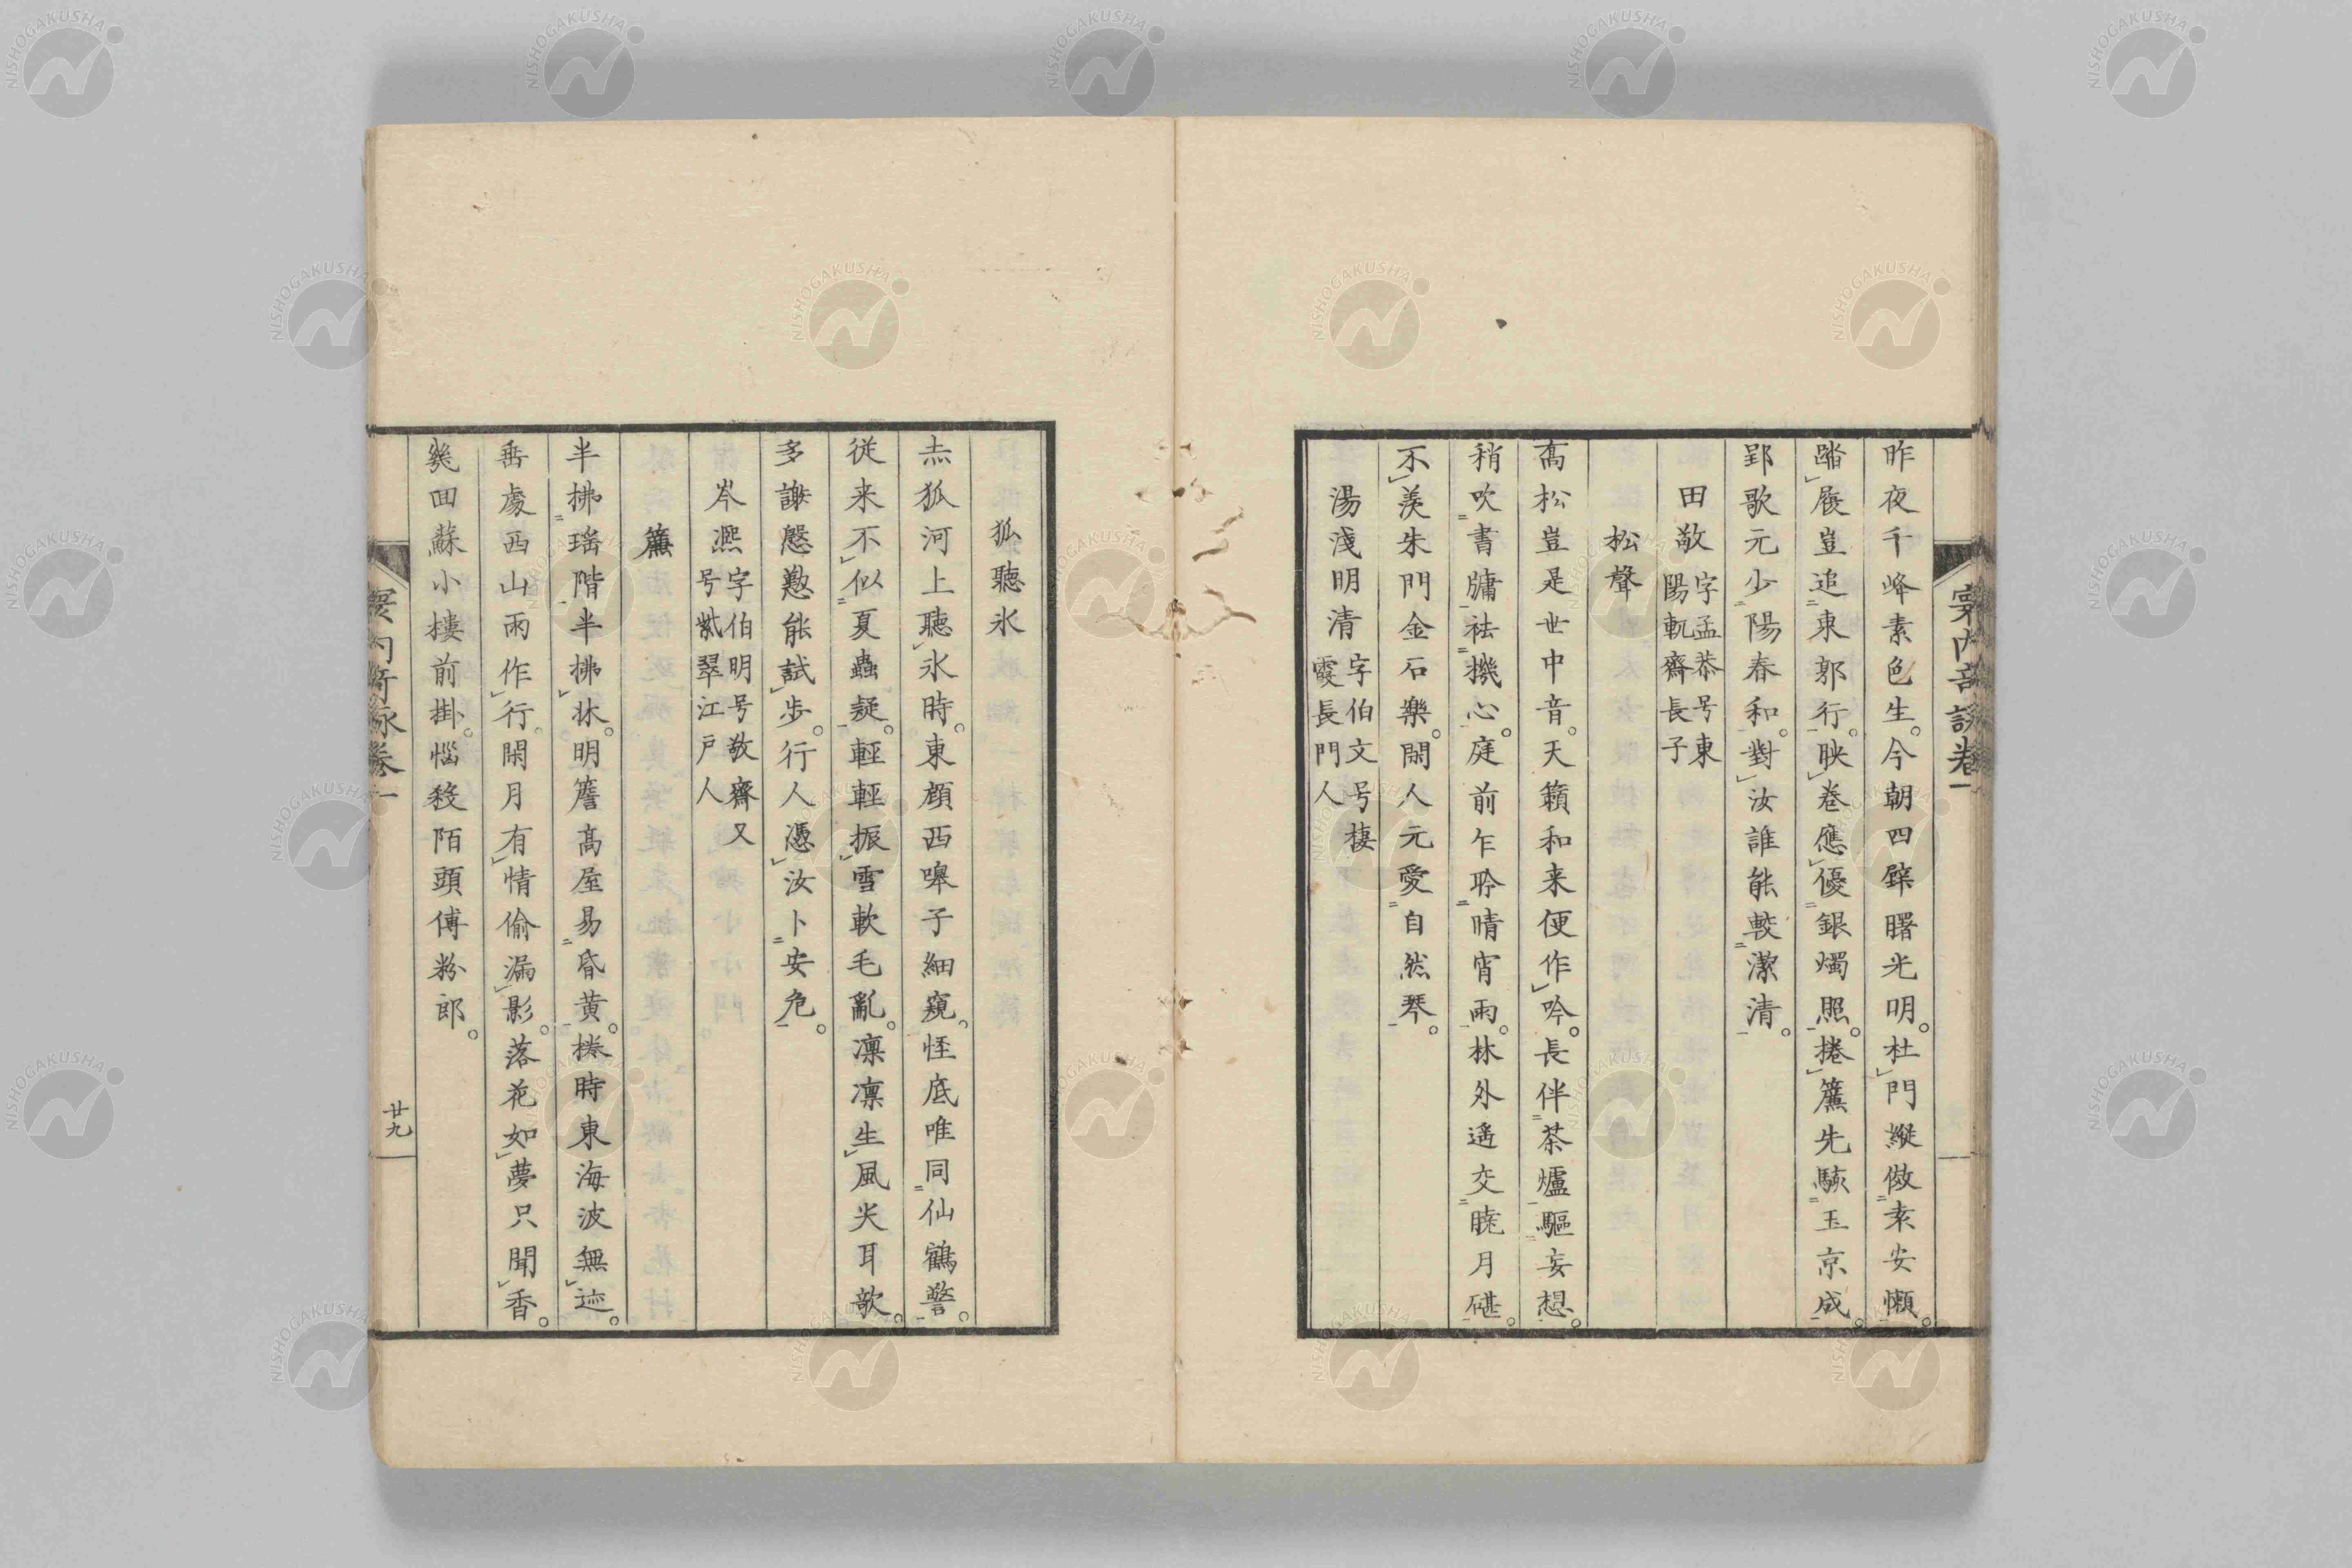 昨夜千峰素色生。今朝四壁曙光明。杜門縱倣袁安懶。
踏履豈追東郭行。映卷應優銀燭照。捲簾先駭玉京成。
郢歌元少陽春和。對汝誰能較潔清。
田敬字孟恭号東陽軌齋長子
松聲
高松豈是世中音。天籟和来便作吟。長伴茶爐驅妄想。
稍吹書牖祛機心。庭前乍聆晴宵雨。林外遙交曉月碪。
不羨朱門金石樂。閑人元愛自然琴。
湯淺明清字伯文号棲霞長門人
狐聽氷
点狐河上聽氷時。東顧西嗥子細窺。恠底唯同仙鶴警。
従来不似夏蟲疑。輕輕振雪軟毛亂。凛凛生風尖耳欹。
多謝慇懃能試步。行人憑汝卜安危。
岑凞字伯明号敬齋又号紫翠江戸人
簾
半拂瑤階半拂牀。明簷高屋易昏黄。捲時東海波無迹。
垂處西山雨作行。閑月有情偷漏影。落花如夢只聞香。
幾回蘇小樓前掛。惱殺陌頭傅粉郎。
卷一
廿九
NISHOGAKUSHA